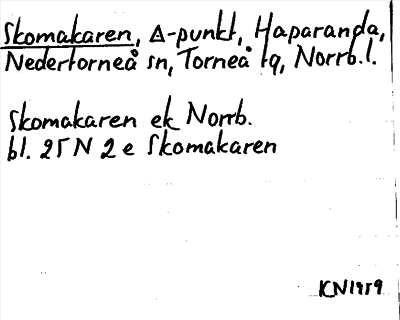 Skomakaren, Δ-punkt, Haparanda,
Nedertorneå sn, Torneå tg, Norrb.l.
Skomakaren ek Norrb.
bl. 25 N 2 e Skomakaren
KN1959